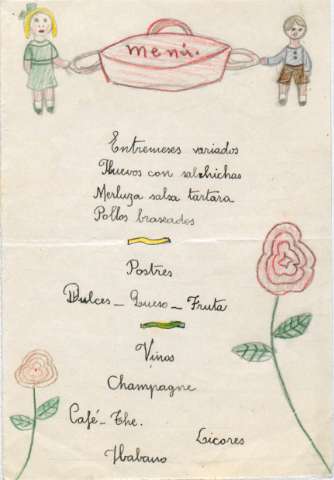 menú.
Entremeses variados
Huevos con salchichas
Merluza salsa tartara
Pollos braseados
Postres
Dulces - Queso - Fruta
Vinos
Champagne
Café - The.
Licores
Habano